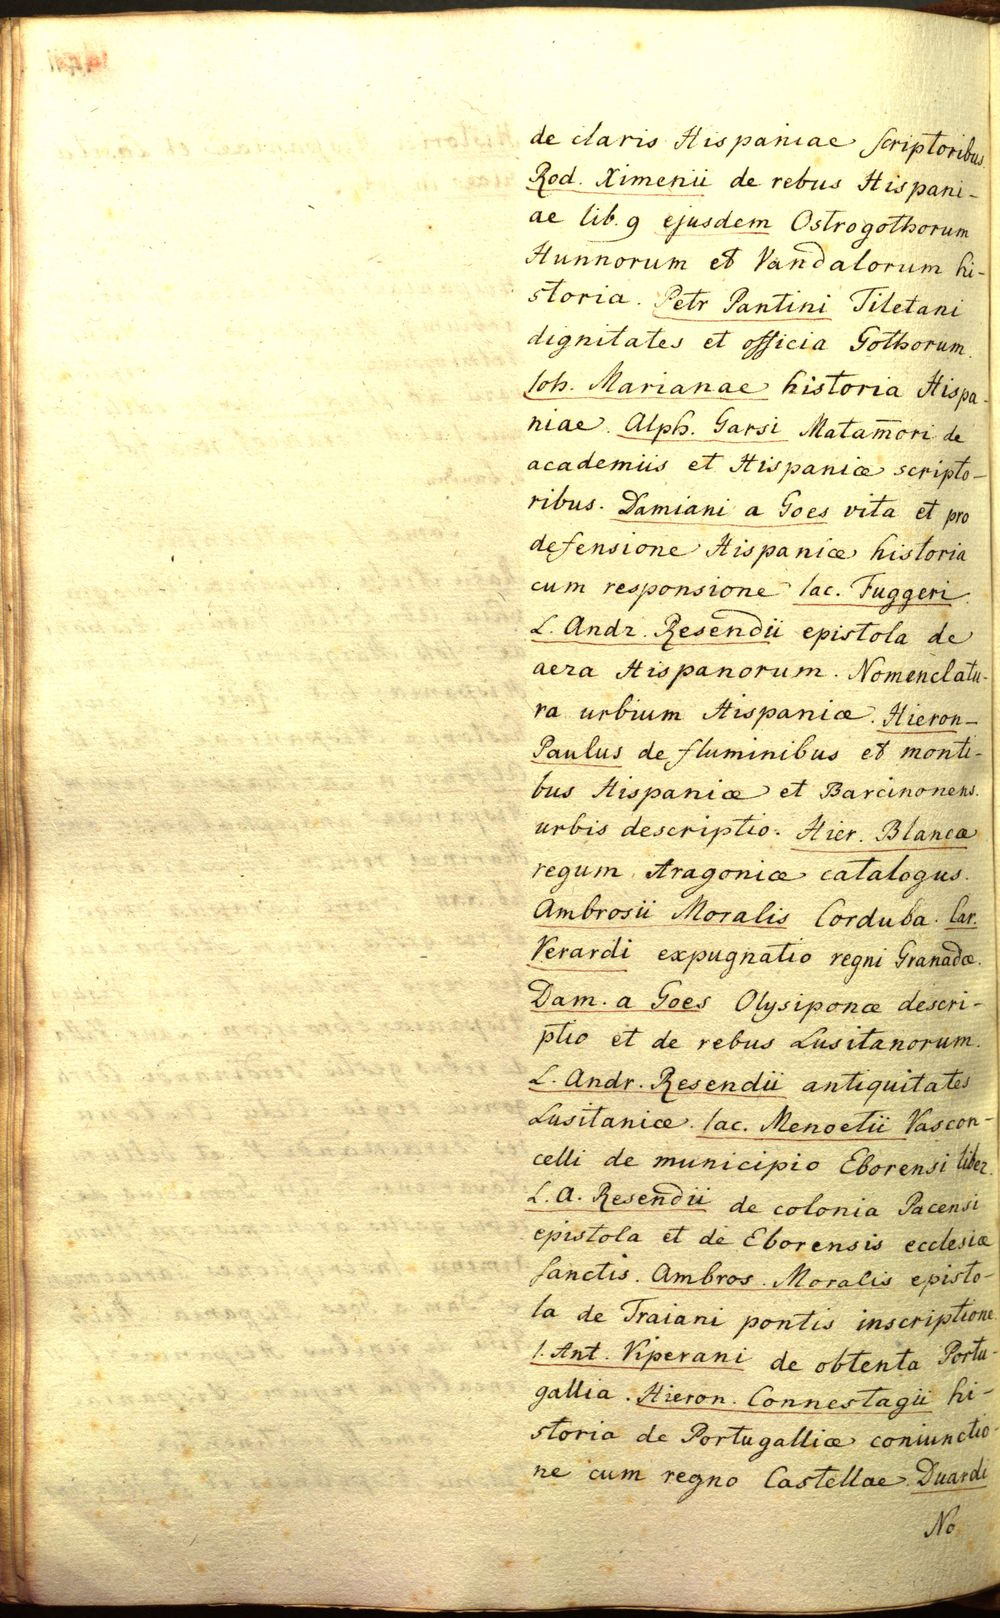 de claris Hispaniae scriptoribus
Rod. Ximenii de rebus Hispani-
ae lib. 9 ejusdem Ostrogothorum
Hunnorum et Vandalorum hi-
storia. Petr Pantini Tiletani
dignitates et officia Gothorum.
Ioh. Marianae historia Hispa-
niae. Alph. Garsi Matamori de
academiis et Hispaniæ scripto-
ribus. Damiani a Goes vita et pro
defensione Hispaniæ historia
cum responsione Iac. Fuggeri.
L. Andr. Resendii epistola de
aera Hispanorum. Nomenclatu-
ra urbium Hispaniæ. Hieron-
Paulus de fluminibus et monti-
bus Hispaniæ et Barcinonens.
urbis descriptio. Hier. Blancæ
regum Aragoniæ catalogus.
Ambrosii Moralis Corduba. Car.
Verardi expugnatio regni Granadæ.
Dam. a Goes Olysiponæ descri-
ptio et de rebus Lusitanorum.
L. Andr. Resendii antiquitates
Lusitaniæ. Iac. Menoetii Vascon-
celli de municipio Eborensi liber.
L. A. Resendii de colonia Pacensi
epistola et de Eborensis ecclesiæ
sanctis. Ambros. Moralis episto-
la de Traiani pontis inscriptione.
I. Ant. Viperani de obtenta Portu-
gallia. Hieron. Connestagii hi-
storia de Portugalliæ coniunctio-
ne cum regno Castellae. Duardi
No